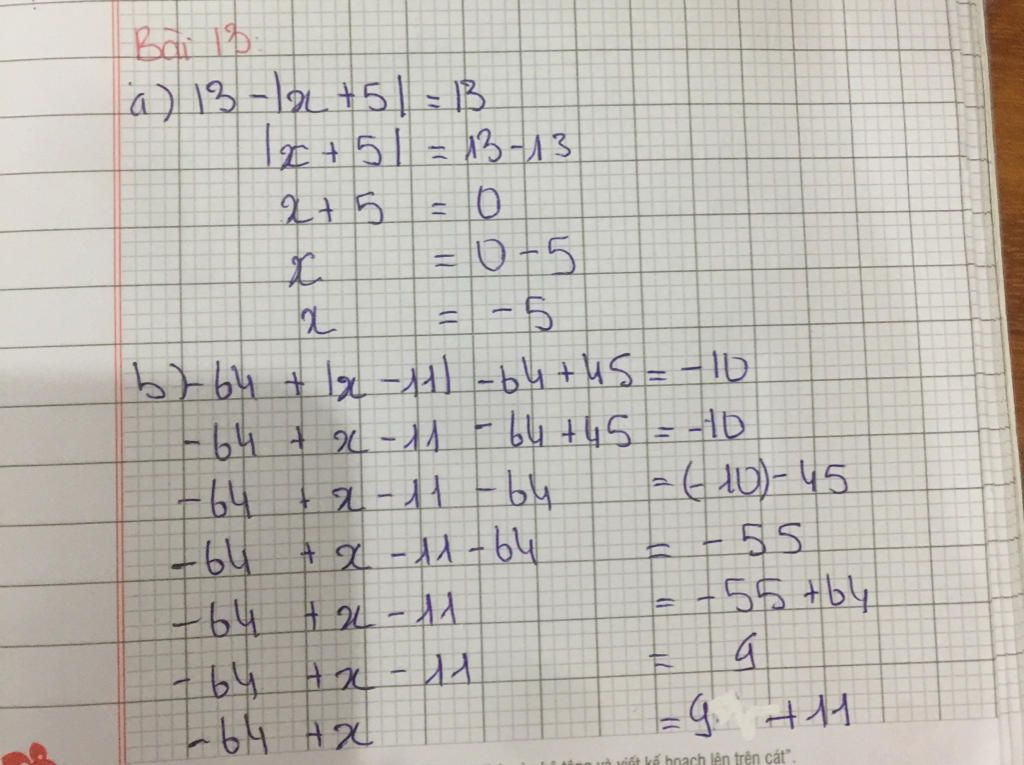 Bài 13:
a) 13 - |x + 5| = 13
|x + 5| = 13 - 13
x + 5 = 0
x = 0 - 5
x = - 5
b) - 64 + |x - 11| - 64 + 45 = - 10
- 64 + x - 11 - 64 + 45 = - 10
- 64 + x - 11 - 64 = (- 10) - 45
- 64 + x - 11 - 64 = - 55
- 64 + x - 11 = - 55 + 64
- 64 + x - 11 = 9
- 64 + x = 9 + 11
và viết kế hoạch lên trên cát".